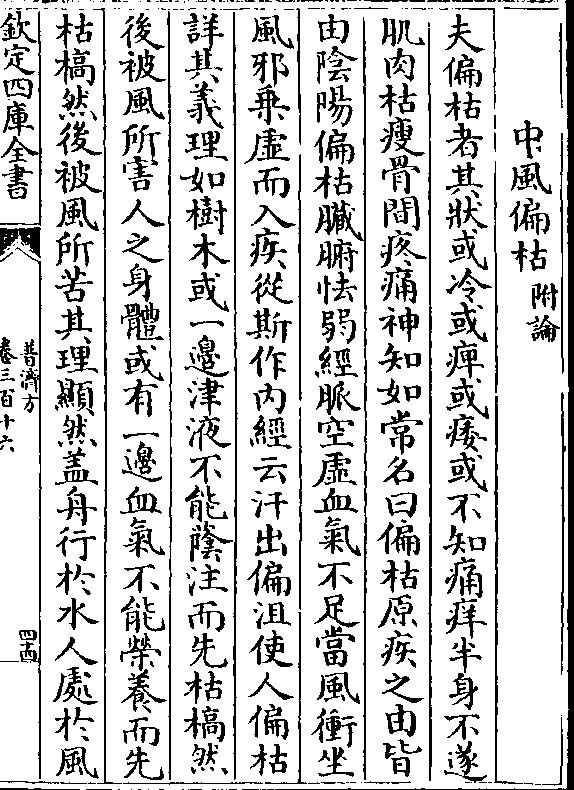 中風偏枯附論
夫偏枯者其狀或冷或痺或痿或不知痛痒半身不遂
肌肉枯瘦骨間疼痛神知如常名曰偏枯原疾之由皆
由陰陽偏枯臟腑怯弱經脈空虛血氣不足當風衝坐
風邪乗虛而入疾從斯作内經云汗出偏沮使人偏枯
詳其義理如樹木或一邊津液不能蔭注而先枯槁然
後被風所害人之身體或有一邊血氣不能榮養而先
枯槁然後被風所苦其理顯然蓋舟行於水人處於風
欽定四庫全書
普濟方
卷三百十六
四十四